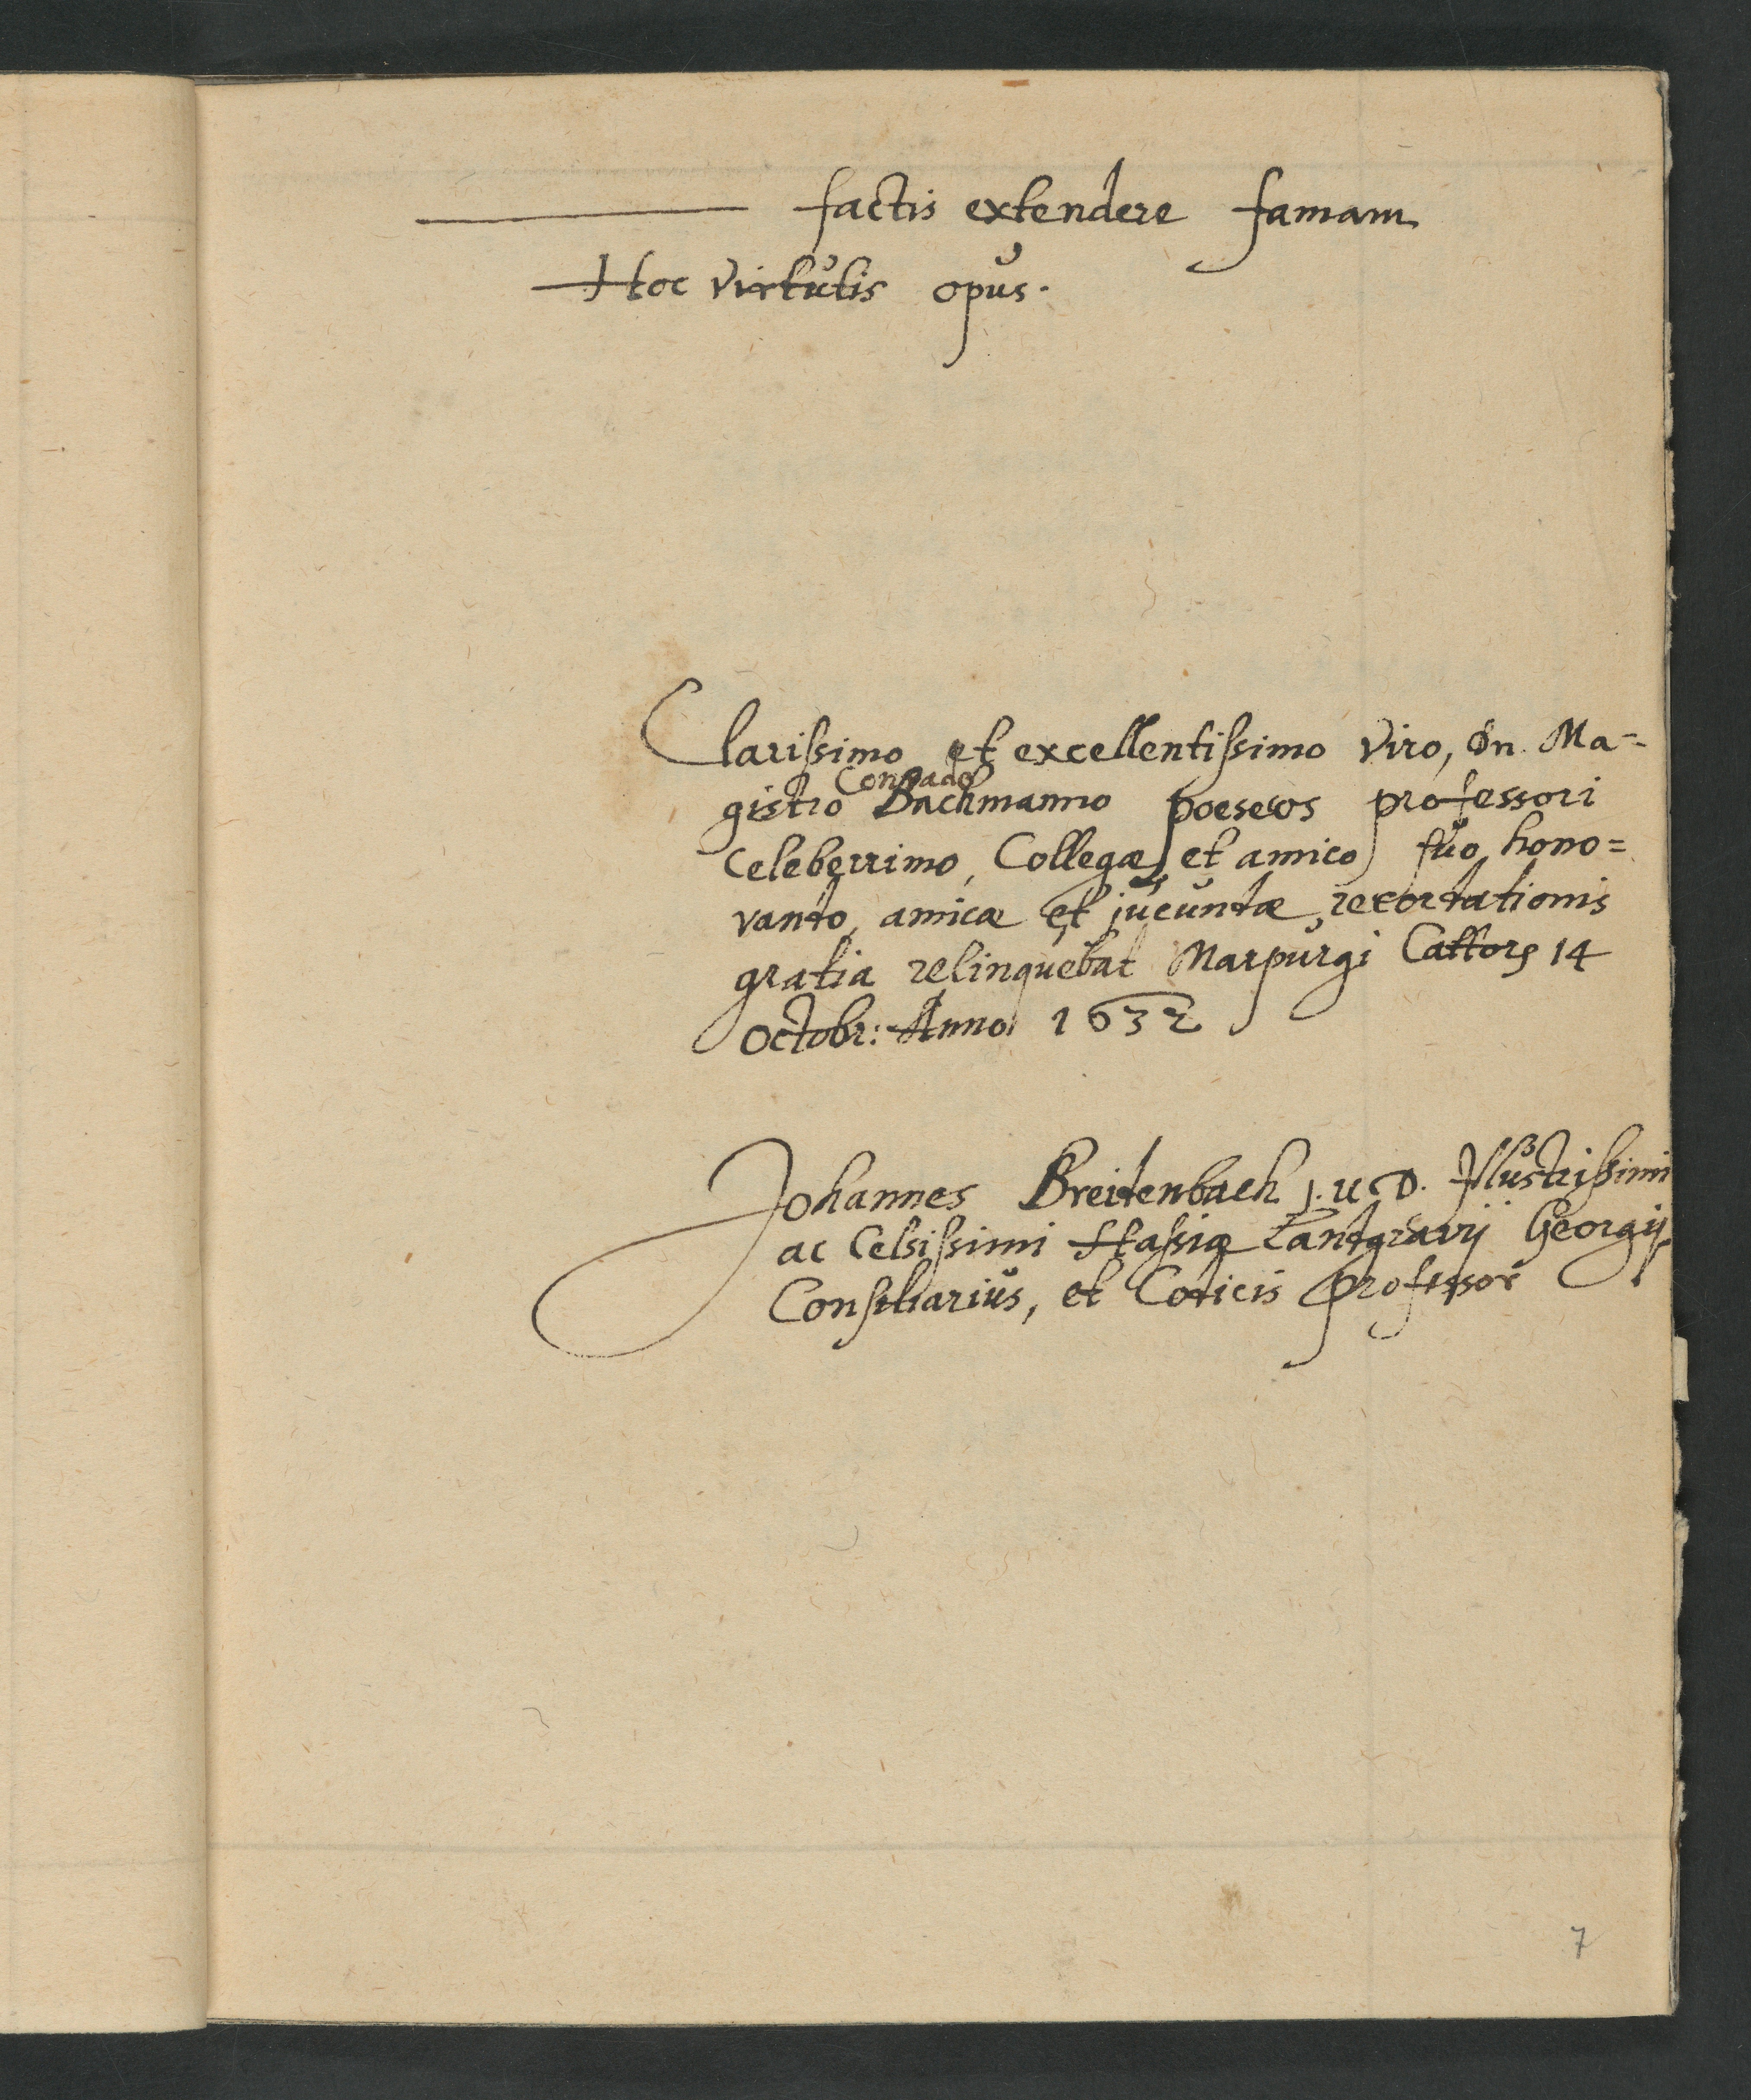 factis extendere famam
Hoc virtutis opus.
Clarissimo et excellentissimo viro, Dn. Ma=
gistro Conrado Bachmanno poeseos professori
celeberrimo, Collegæ et amico suo hono=
rando, amicæ et jucundæ recordationis
gratia relinquebat Marpurgi Cattorꝫ 14
Octobr: Anno 1632
Johannes Breidenbach J.U.D. Illustrissimi
ac Celsissimi Hassiæ Landgravij Georgij
Consiliarius, et Codicis professor
7